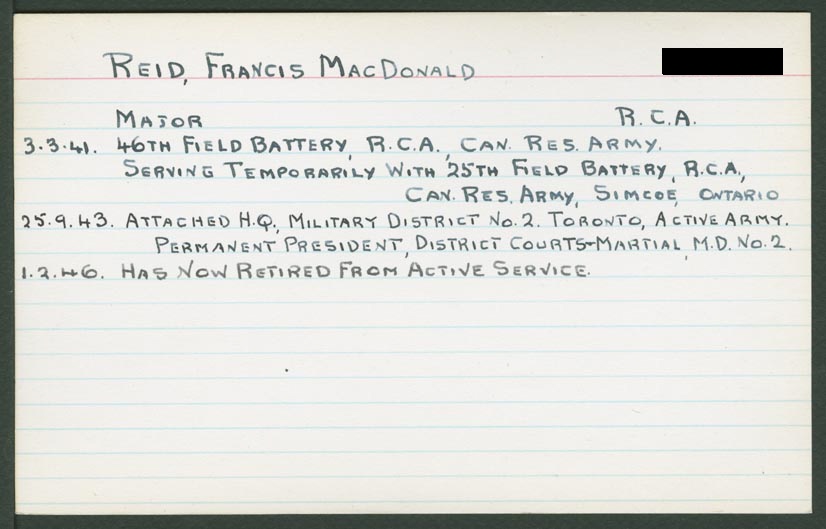 REID, FRANCIS MACDONALD
MAJOR R.C.A.
3.3.41. 46TH FIELD BATTERY, R.C.A., CAN. RES. ARMY.
SERVING TEMPORARILY WITH 25TH FIELD BATTERY, R.C.A.,
CAN. RES. ARMY, SIMCOE, ONTARIO
25.9.43. ATTACHED H.Q., MILITARY DISTRICT NO.2. TORONTO, ACTIVE ARMY.
PERMANENT PRESIDENT, DISTRICT COURTS-MARTIAL, M.D. NO.2.
1.2.46. HAS NOW RETIRED FROM ACTIVE SERVICE.